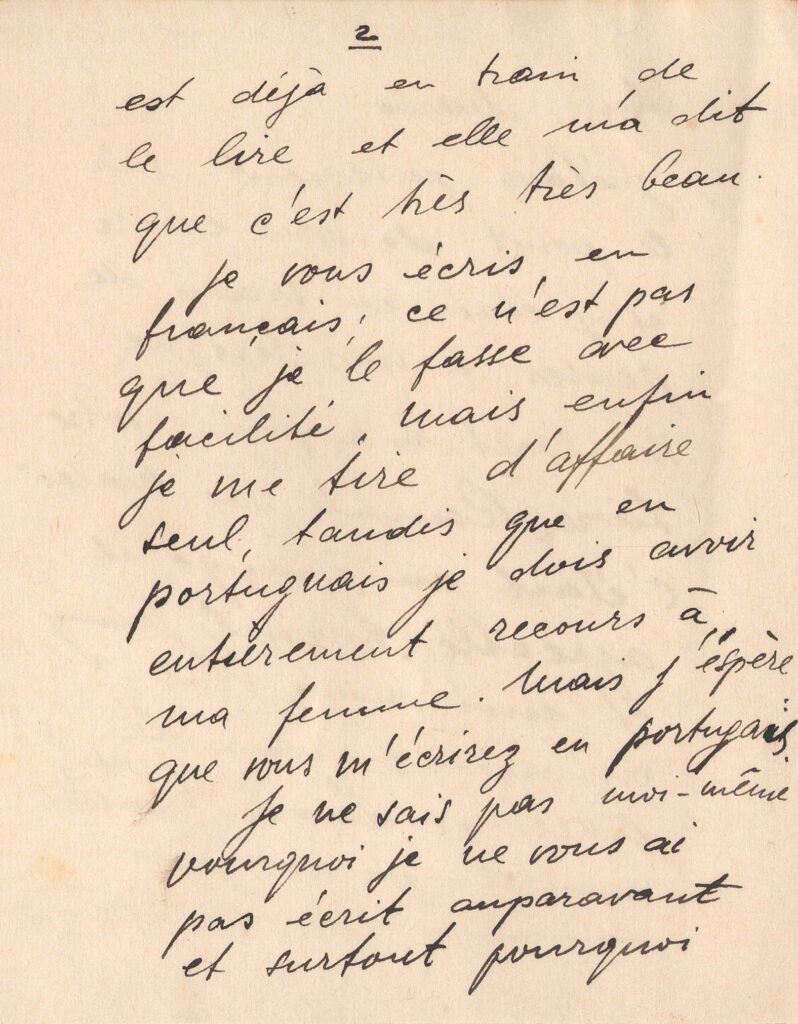 2
est déjà en train de
le lire et elle m'a dit
que c'est très très beau.
Je vous écris, en
français; ce n'est pas
que je le fasse avec
facilité, mais enfin
je me tire d'affaire
seul, tandis que en
portuguais je dois avoir
entièrement recours à
ma femme. Mais j'éspère
que vous m'écrirez en portugais.
Je ne sais pas moi-même
pourquoi je ne vous ai
pas écrit auparavant
et surtout pourquoi